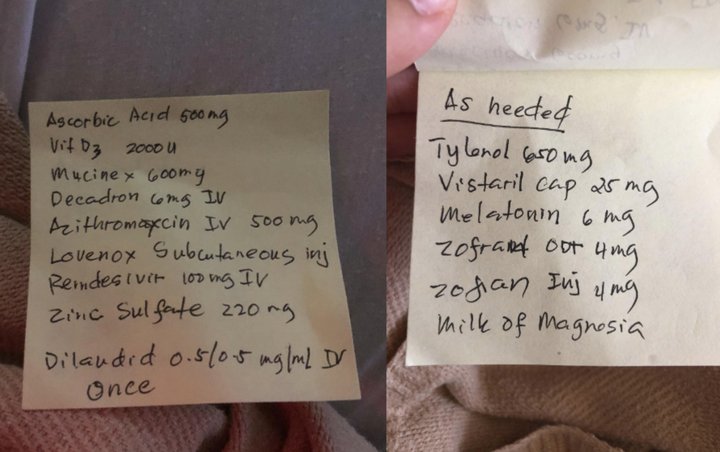 Ascorbic Acid 500mg
Vit D3 2000u
Mucinex 600mg
Decadron 6mg IV
Azithromoxcin IV 500 mg
Lovenox Subcutaneous inj
Remdesivir 100mg IV
Zinc Sulfate 220 mg
Dilaudid 0.5/0.5 mg/ml IV
Once
As needed
Tylenol 650mg
Vistaril cap 25 mg
Melatonin 6 mg
Zofran ODT 4mg
Zofran Inj 4mg
Milk of Magnesia